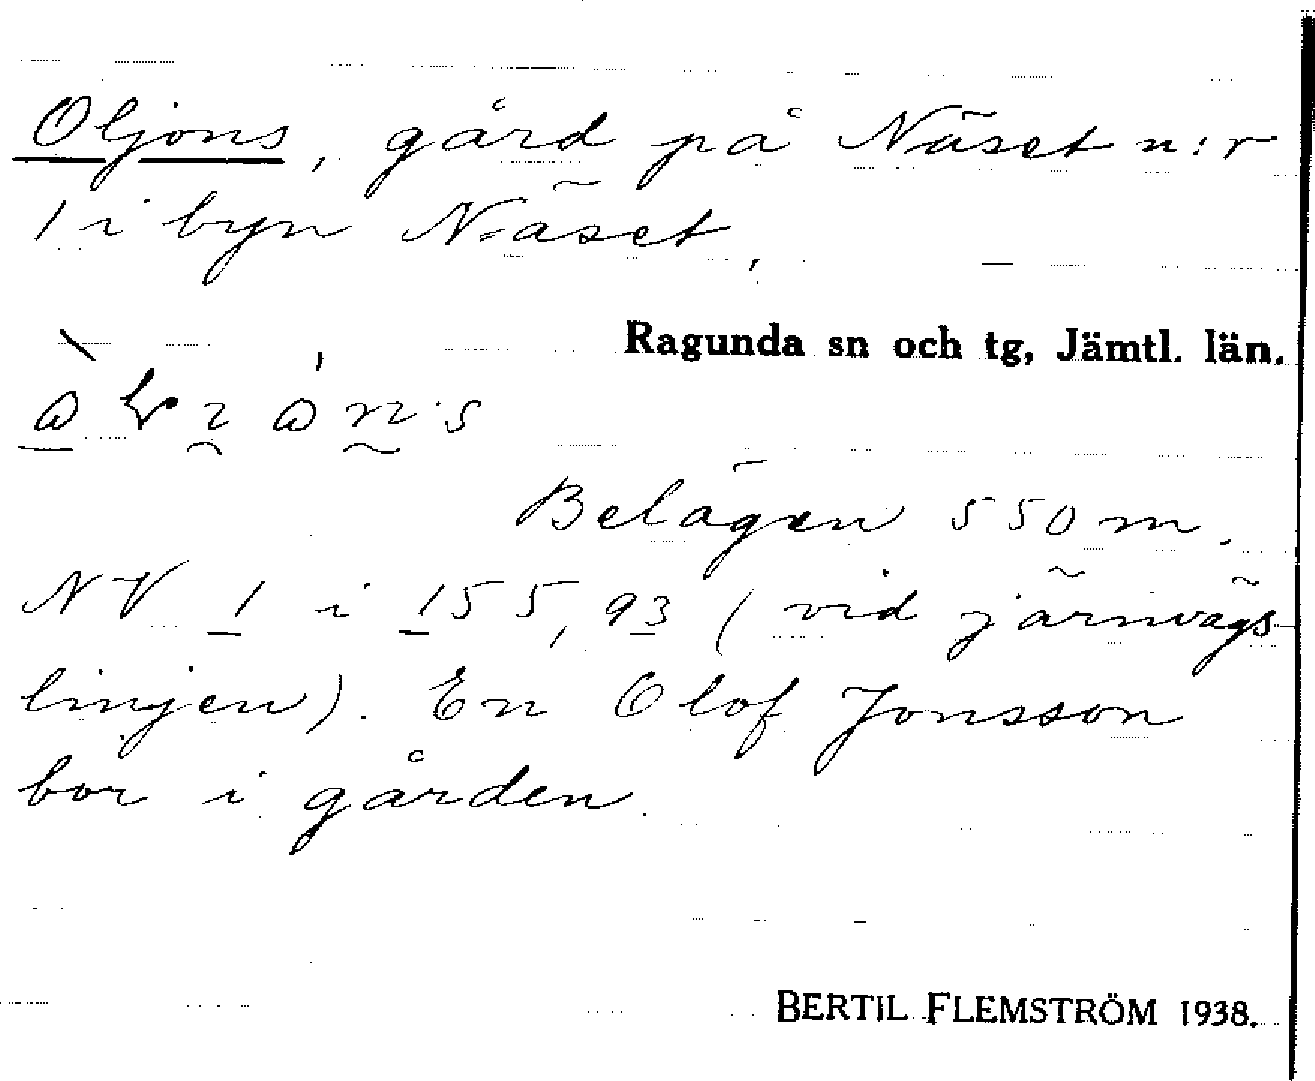 Oljons, gård på Näset n:r
1 i byn Näset.
Ragunda sn och tg, Jämtl. län.
Belägen 550 m.
NV 1 i 155,93 (vid järnvägs-
linjen). En Olof Jonsson
bor i gården.
BERTIL FLEMSTRÖM 1938.